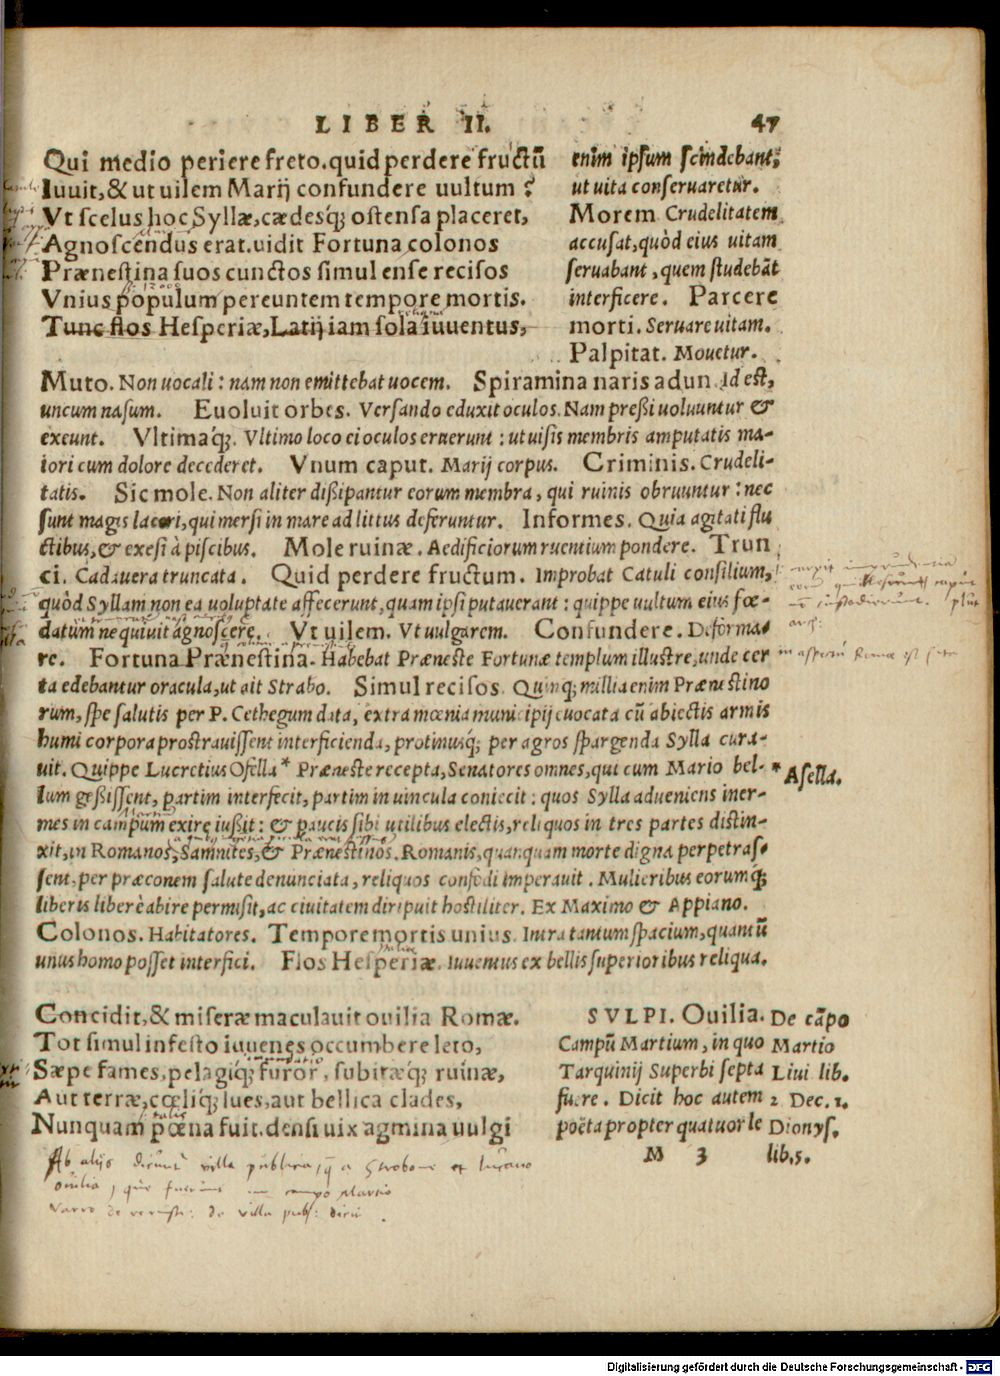 LIBER II. 47
Qui medio periere freto. quid perdere fructũ
Iuuit, & ut uilem Marij confundere uultum ?
Vt scelus hoc Syllæ, cædesq́; ostensa placeret,
Agnoscendus erat. uidit Fortuna colonos
Prænestina suos cunctos simul ense recisos
Vnius populum pereuntem tempore mortis.
Tunc flos Hesperiæ, Latij iam sola iuuentus,
enim ipsum scindebant,
ut uita conseruaretur.
Morem Crudelitatem
accusat, quòd eius uitam
seruabant, quem studebãt
interficere. Parcere
morti. Seruare uitam.
Palpitat. Mouetur.
Muto. Non uocali: nam non emittebat uocem. Spiramina naris adun. Id est,
uncum nasum. Euoluit orbes. Versando eduxit oculos. Nam preßi uoluuntur &
exeunt. Vltimaq́;. Vltimo loco ei oculos eruerunt: ut uisis membris amputatis ma-
iori cum dolore decederet. Vnum caput. Marij corpus. Criminis. Crudeli-
tatis. Sic mole. Non aliter dißipantur eorum membra, qui ruinis obruuntur: nec
sunt magis laceri, qui mersi in mare ad littus deferuntur. Informes. Quia agitati flu
ctibus, & exesi à piscibus. Mole ruinæ. Aedificiorum ruentium pondere. Trun
ci. Cadauera truncata. Quid perdere fructum. Improbat Catuli consilium,
quòd Syllam non ea uoluptate affecerunt, quam ipsi putauerant: quippe uultum eius fœ-
datum nequiuit agnoscere. Vt uilem. Vt uulgarem. Confundere. Deforma-
re. Fortuna Prænestina. Habebat Præneste Fortunæ templum illustre, unde cer
ta edebantur oracula, ut ait Strabo. Simul recisos. Quinq; millia enim Prænestino
rum, spe salutis per P. Cethegum data, extra mœnia municipij euocata cũ abiectis armis
humi corpora prostrauissent interficienda, protinusq́; per agros spargenda Sylla cura-
uit. Quippe Lucretius Ofella* Præneste recepta, Senatores omnes, qui cum Mario bel-
lum geßissent, partim interfecit, partim in uincula coniecit: quos Sylla adueniens iner-
mes in campum exire iußit: & paucis sibi utilibus electis, reliquos in tres partes distin-
xit, in Romanos, Samnites, & Prænestinos. Romanis, quanquam morte digna perpetras-
sent, per præconem salute denunciata, reliquos confodi imperauit. Mulieribus eorumq́;
liberis liberè abire permisit, ac ciuitatem diripuit hostiliter. Ex Maximo & Appiano.
Colonos. Habitatores. Tempore mortis unius. Intra tantum spacium, quantũ
unus homo posset interfici. Flos Hesperiæ. Iuuentus ex bellis superioribus reliqua.
* Asella.
Concidit, & miseræ maculauit ouilia Romæ.
Tot simul infesto iuuenes occumbere leto,
Sæpe fames, pelagiq́; furor, subitæq́; ruinæ,
Aut terræ, cœliq́; lues, aut bellica clades,
Nunquam pœna fuit. densi uix agmina uulgi
SVLPI. Ouilia.
Campũ Martium, in quo
Tarquinij Superbi septa
fuere. Dicit hoc autem
poëta propter quatuor le
De cãpo
Martio
Liui lib.
2 Dec. 1.
Dionys.
lib. 5.
M 3
Ab alijs villa publica,
ouilia, campo Martio
Varro de villa
Digitalisierung gefördert durch die Deutsche Forschungsgemeinschaft - DFG